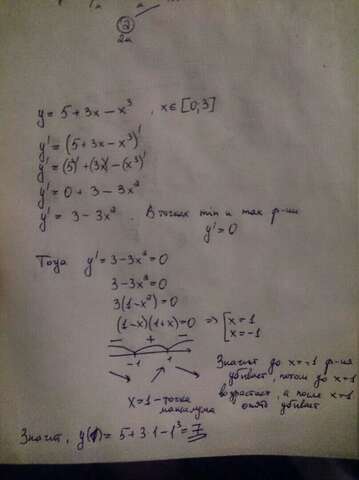 ②
2и
y = 5 + 3x − x³ , x ∈ [0;3]
y' = (5 + 3x − x³)'
y' = (5)' + (3x)' − (x³)'
y' = 0 + 3 − 3x²
y' = 3 − 3x². В точках min и max ф-ии
y' = 0
Тогда y' = 3 − 3x² = 0
3 − 3x² = 0
3(1 − x²) = 0
(1−x)(1+x) = 0 ⇒ [x = 1
x = −1
− + −
−1 1
Значит до x = −1 ф-ия
убывает, потом до x = 1
возрастает, а после x = 1
опять убывает
x = 1 − точка
максимума
Значит, y(1) = 5 + 3·1 − 1³ = 7